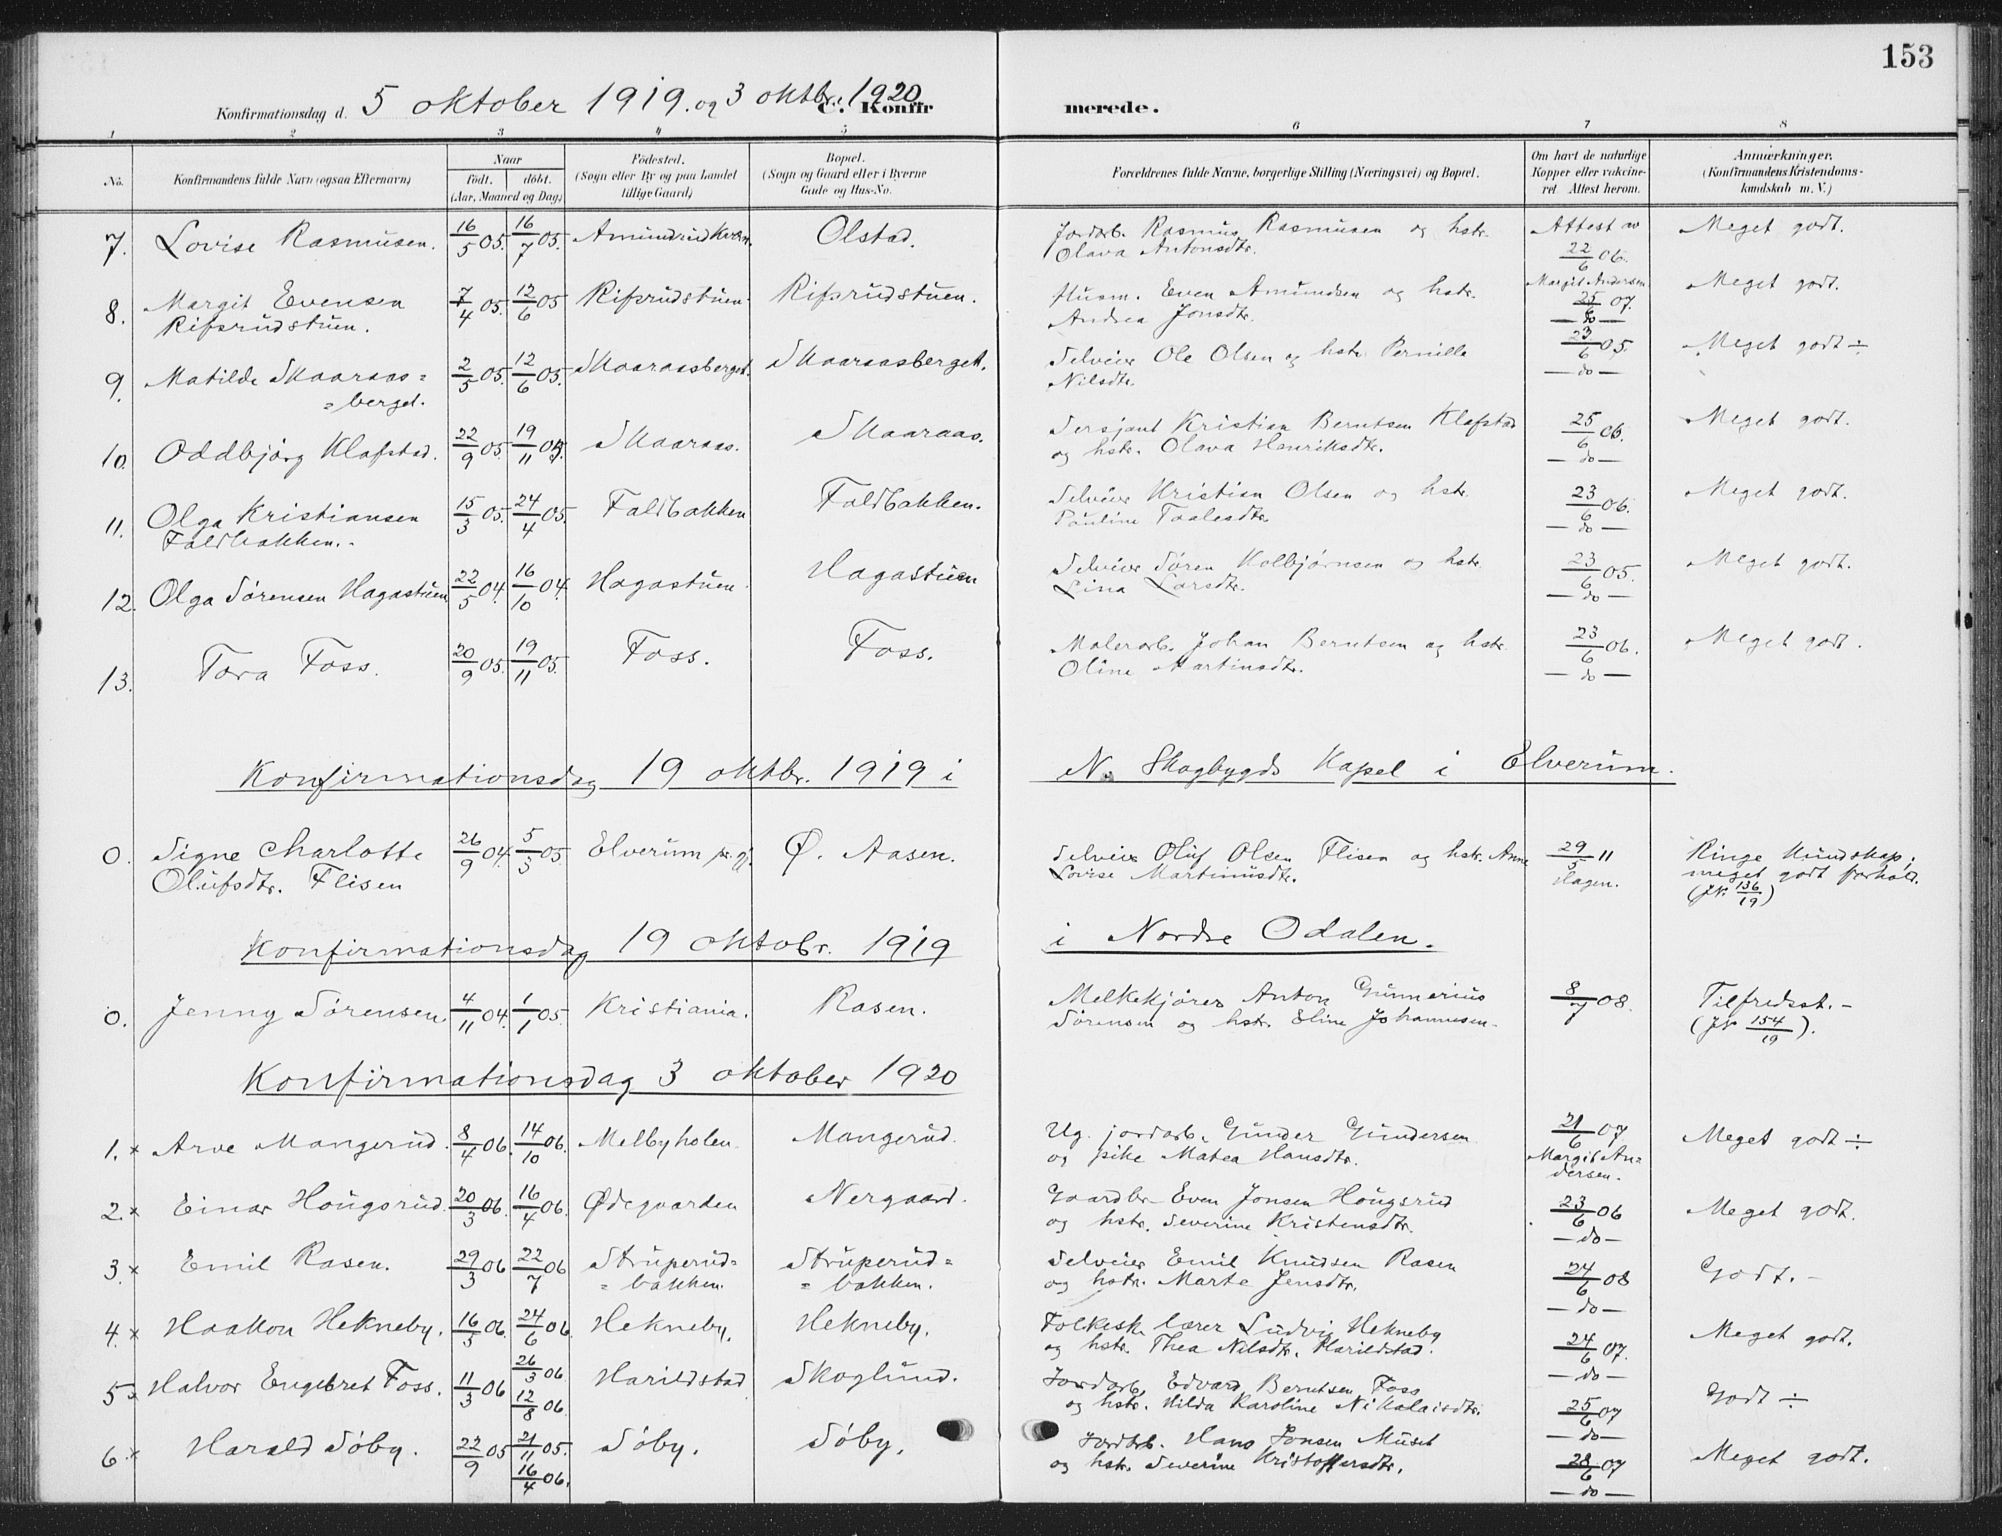 153
Konfirmationsdag d. 5 oktober 1919. og 3 oktbr. 1920. C. Konfirmerede.
1 2 3 4 5 6 7 8
No. Konfirmandens fulde Navn (ogsaa Efternavn) Naar født. døbt. (Aar, Maaned og Dag) Fødested. (Sogn eller By og paa Landet tillige Gaard) Bopæl. (Sogn og Gaard eller i Byerne Gade og Hus-No. Forældrenes fulde Navne, borgerlige Stilling (Næringsvei) og Bopæl. Om havt de naturlige Kopper eller vaccineret Attest herom. Anmærkninger. (Konfirmandens Kristendomskundskab m. V.)
7. Lovise Rasmusen. 16/5 05. 16/7 05. Amundrud Kvern. Olstad. Jordarb. Rasmus Rasmusen og hstr. Attest av Meget godt.
Olava Antonsdtr. 22/6 06.
8. Margit Evensen 7/4 05 12/6 05 Rifsrudstuen. Rifsrudstuen. Husm. Even Amundsen og hstr. Margit Andersen Meget godt.
Rifsrudstuen. Andrea Jonsdtr. 25/6 07.
—do—
9. Matilde Skaaraas= 2/5 05. 12/6 05. Skaaraasberget. Skaaraasberget. Selveier Ole Olsen og hstr. Pernille 23/6 05. Meget godt ÷
=berget. Nilsdtr. —do—
10. Oddbjørg Klafstad. 22/9 05. 19/11 05. Skaaraas. Skaaraas. Sersjant Kristian Berntsen Klafstad 25/6 06. Meget godt.
og hstr. Olava Henriksdtr. —do—
11. Olga Kristiansen 15/3 05. 24/4 05. Faldbakken Faldbakken. Selveier Kristian Olsen og hstr. 23/6 06. Meget godt.
Faldbakken. Pauline Taalesdtr. —do—
12. Olga Sørensen Hagastuen 22/5 04. 16/10 04. Hagastuen. Hagastuen Selveier Søren Kolbjørnsen og hstr. 23/6 05. Meget godt.
Lina Larsdtr. —do—
13. Tora Foss. 20/9 05. 19/11 05. Foss. Foss. Malerarb. Johan Berntsen og hstr. 23/6 06. Meget godt.
Oline Martinsdtr. —do—
Konfirmationsdag 19 oktbr. 1919 i N. Skogbygds Kapel i Elverum.
0. Signe Charlotte 26/9 04. 5/3 05. Elverum pr. gj. Ø. Aasen. Selveier Oluf Olsen Flisen og hstr. Anne 29/5 11 Ringe kundskap,
Olufsdtr. Flisen Lovise Martinusdtr. Hagen. meget godt forhold.
(JN. 136/19)
Konfirmationsdag 19 oktobr. 1919 i Nordre Odalen.
0. Jenny Sørensen. 4/11 04. 1/1 05. Kristiania. Rasen. Melkekjører Anton Gunnerius 8/7 08. Tilfredsst.-
Sørensen og hstr. Eline Johannesen. (JN 154/19).
Konfirmationsdag 3 oktober 1920
1. x Arve Mangerud. 8/4 06. 14/10 06. Melbyholen. Mangerud. Ug. jordarb. Gunder Gundersen 21/6 07 Meget godt ÷
og pike Matea Hansdtr. Margit An=
dersen.
2. x Einar Hougsrud. 20/3 06. 16/4 06. Ødegaarden Nergaard. Gaardbr. Even Jonsen Hougsrud 23/6 06 Meget godt.
og hstr. Severine Kristensdtr. —do—
3. x Emil Rasen. 29/3 06 22/7 06 Struperud= Struperud= Selveier Emil Knudsen Rasen 24/6 08 Godt.-
=bakken. =bakken. og hstr. Marte Jensdtr. —do—
4. x Haakon Hekneby. 16/5 06. 24/6 06. Hekneby. Hekneby. Folkesk. lærer Ludvig Hekneby 24/6 07. Meget godt.
og hstr. Thea Nilsdtr. Harildstad. —do—
5. x Halvor Engebret Foss. 11/3 06 26/3 06. Harildstad Skoglund. Jordarb. Edvard Berntsen Foss 25/6 07 Godt ÷
12/8 06. og hstr. Hilda Karoline Nikolaisdtr. —do—
6. x Harald Søby. 22/9 05 21/11 05. Søby. Søby. Jordarb. Hans Jonsen Muset 28/6 07 Meget godt.
16/4 06. og hstr. Severine Kristoffersdtr. —do—